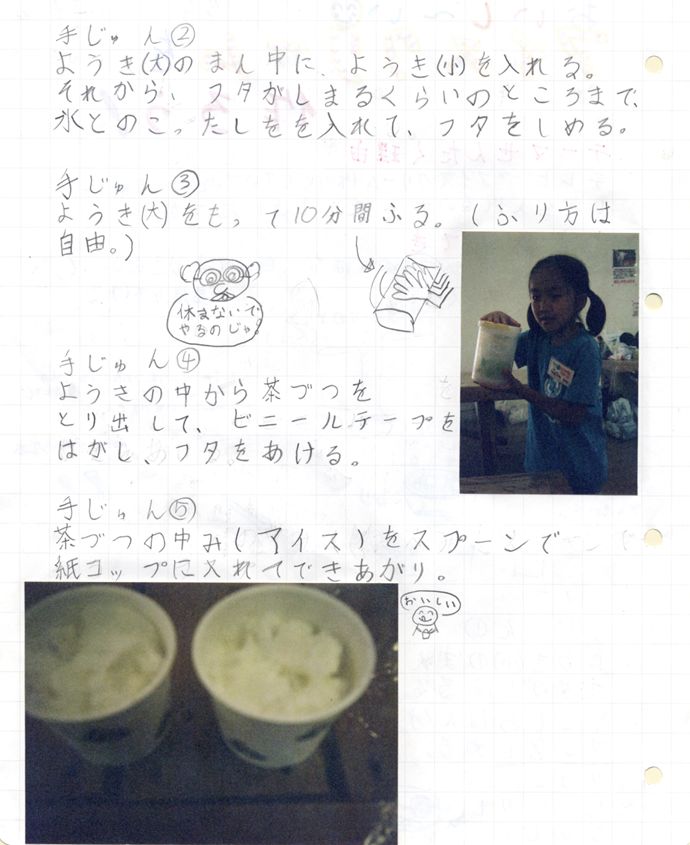 手じゅん②
ようき(大)のまん中に、ようき(小)を入れる。
それから、フタがしまるくらいのところまで、
氷とのこったしをを入れて、フタをしめる。
手じゅん③
ようき(大)をもって10分間ふる。(ふり方は
自由。)
休まないで
やるのじゃ!
手じゅん④
ようきの中から茶づつを
とり出して、ビニールテープを
はがし、フタをあける。
手じゅん⑤
茶づつの中み(アイス)をスプーンで
紙コップに入れてできあがり。
おいしい